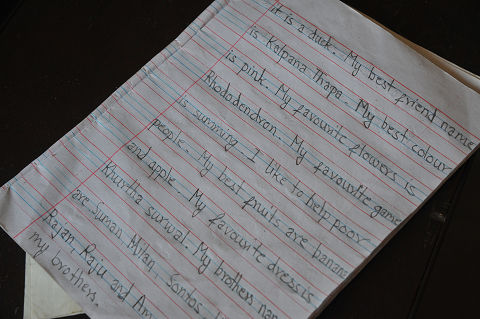 it is a duck. My best friend name
is Kalpana Thapa. My best colour
is pink. My favourite flowers is
Rhododendron. My favourite game
is summing I like to help poor
people. My best fruits are banana
and apple. My favourite dress is
Khurtha surwal. My brothers nam
are Suman Milan, Santos
Rajan Raju and Am
my brothers.